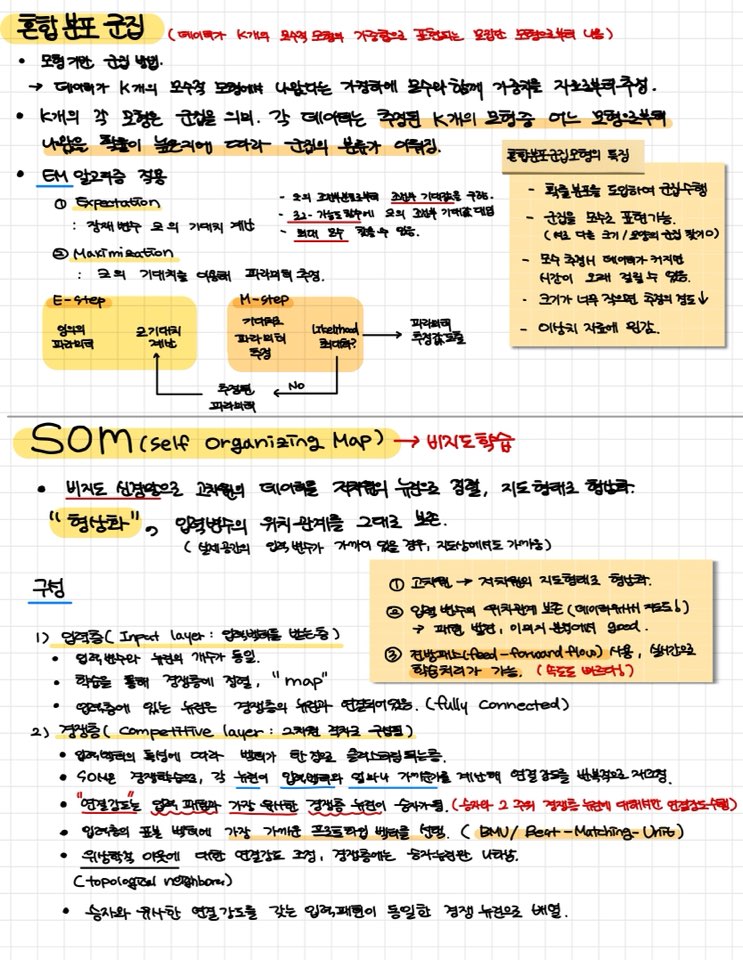 혼합 분포 군집 (데이터가 K개의 모수적 모형의 가중합으로 표현되는 모집단 모형으로부터 나옴)
• 모형기반 군집 방법.
→ 데이터가 K개의 모수적 모형에서 나왔다는 가정하에 모수와 함께 가중치를 자료로부터 추정.
• K개의 각 모형은 군집을 의미. 각 데이터는 추정된 K개의 모형중 어느 모형으로부터
나왔을 확률이 높은지에 따라 군집의 분류가 이뤄짐.
• EM 알고리즘 적용
① Expectation
: 잠재변수 Z의 기대치 계산
② Maximization
: Z의 기대치를 이용해 파라미터 추정.
- Z의 조건부분포로부터 조건부 기댓값을 구함.
- 로그-가능도함수에 Z의 조건부 기대값 대입
- 최대 모수 찾을 수 있음.
혼합분포군집모형의 특징
- 확률분포를 도입하여 군집수행
- 군집을 모수로 표현가능.
(서로 다른 크기/모양의 군집 찾기 O)
- 모수 추정시 데이터가 커지면
시간이 오래 걸릴 수 있음.
- 크기가 너무 작으면 추정의 정도↓
- 이상치 자료에 민감.
E-step
임의의
파라미터
Z 기대치
계산
M-step
기대치로
파라미터
추정
Likelihood
최대화?
파라미터
추정값 도출
No
추정된
파라미터
SOM (self organizing Map) → 비지도 학습
• 비지도 신경망으로 고차원의 데이터를 저차원의 뉴런으로 정렬, 지도형태로 형상화.
"형상화", 입력변수의 위치 관계를 그대로 보존.
(실제공간의 입력 변수가 가까이 있을 경우, 지도상에서도 가까움)
구성
① 고차원 → 저차원의 지도형태로 형상화.
② 입력 변수의 위치관계 보존 (데이터 유사성 정도↓)
→ 패턴 발견, 이미지 분석에서 good.
③ 전방패스(feed-forward flow) 사용, 실시간으로
학습처리가 가능. (속도도 빠르다!)
1) 입력층 (Input layer : 입력벡터를 받는층)
• 입력변수와 뉴런의 개수가 동일.
• 학습을 통해 경쟁층에 정렬, "map"
• 입력층에 있는 뉴런은 경쟁층의 뉴런과 연결되어있음. (fully connected)
2) 경쟁층 (Competitive layer : 2차원 격자로 구성됨)
• 입력벡터의 특성에 따라 벡터가 한 점으로 클러스터링 되는층.
• SOM은 경쟁학습으로, 각 뉴런이 입력벡터와 얼마나 가까운가를 계산해 연결강도를 반복적으로 재조정.
• "연결강도"는 입력 패턴과 가장 유사한 경쟁층 뉴런이 승자가됨. (승자와 그 주위 경쟁층 뉴런에 대해서만 연결강도수정)
• 입력층의 표본 벡터에 가장 가까운 프로토타입 벡터를 선택. (BMU/ Best-Matching-Unit)
• 위상학적 이웃에 대한 연결강도 조정, 경쟁층에는 승자뉴런만 나타남.
(topological neighbors)
• 승자와 유사한 연결강도를 갖는 입력패턴이 동일한 경쟁 뉴런으로 배열.